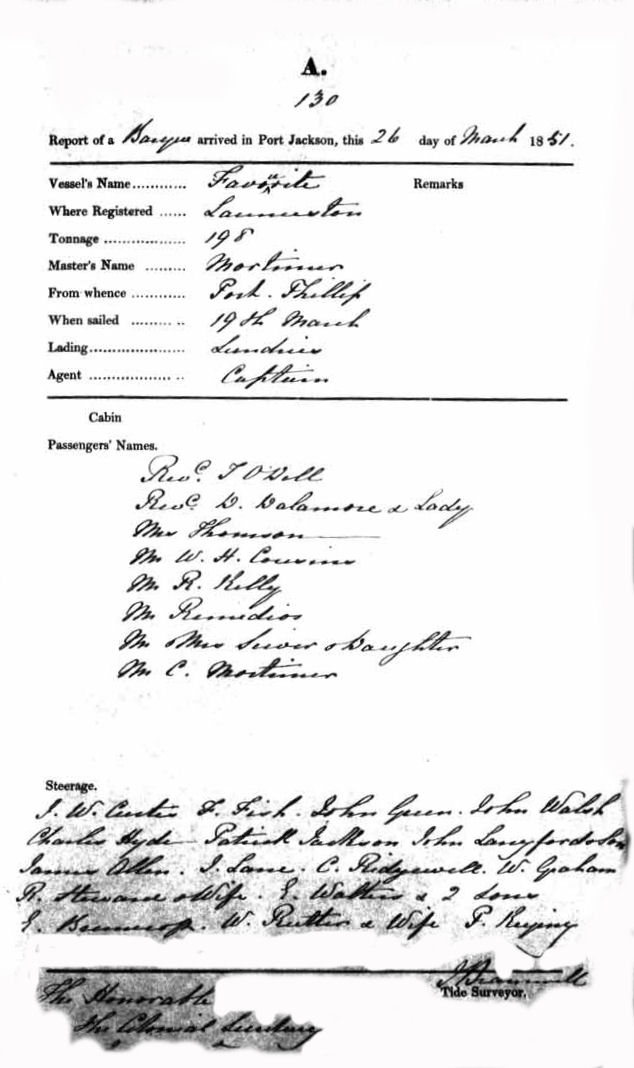 A.
130
Report of a Barque arrived in Port Jackson, this 26 day of March 1851.
Vessel's Name............ Favourite Remarks
Where Registered ...... Launceston
Tonnage .................. 198
Master's Name ......... Mortimer
From whence ............ Port. Phillip
When sailed ......... .. 19th March
Lading..................... Sundries
Agent .................. .. Captain
Cabin
Passengers' Names.
Revd. T O'Dell
Revd. D. Dalamore & Lady
Mrs Thomson
Mr W. H. Cousins
Mr R. Kelly
Mr Remedios
Mr & Mrs & Daughter
Mr C. Mortimer
Steerage.
J. W. Curtis F. Fish. John Green. John Walsh
Charles Hyde Patrick Jackson John Langford & Son
James Allen. J. Lane. C. Ridgewell. W. Graham
R. Howard & Wife. E. Walters & 2 Sons
E. W. Rutter & Wife F.
Tide Surveyor.
The Honorable
The Colonial Secretary